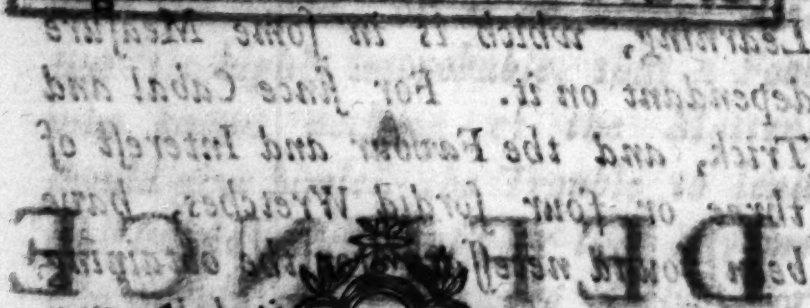 Learning, which is in ſome Meaſure
dependant on it. For ſince Cabal and
Trick, and the Favour and Intereſt of
three or four ſordid Wretches, have
been found the obtaining